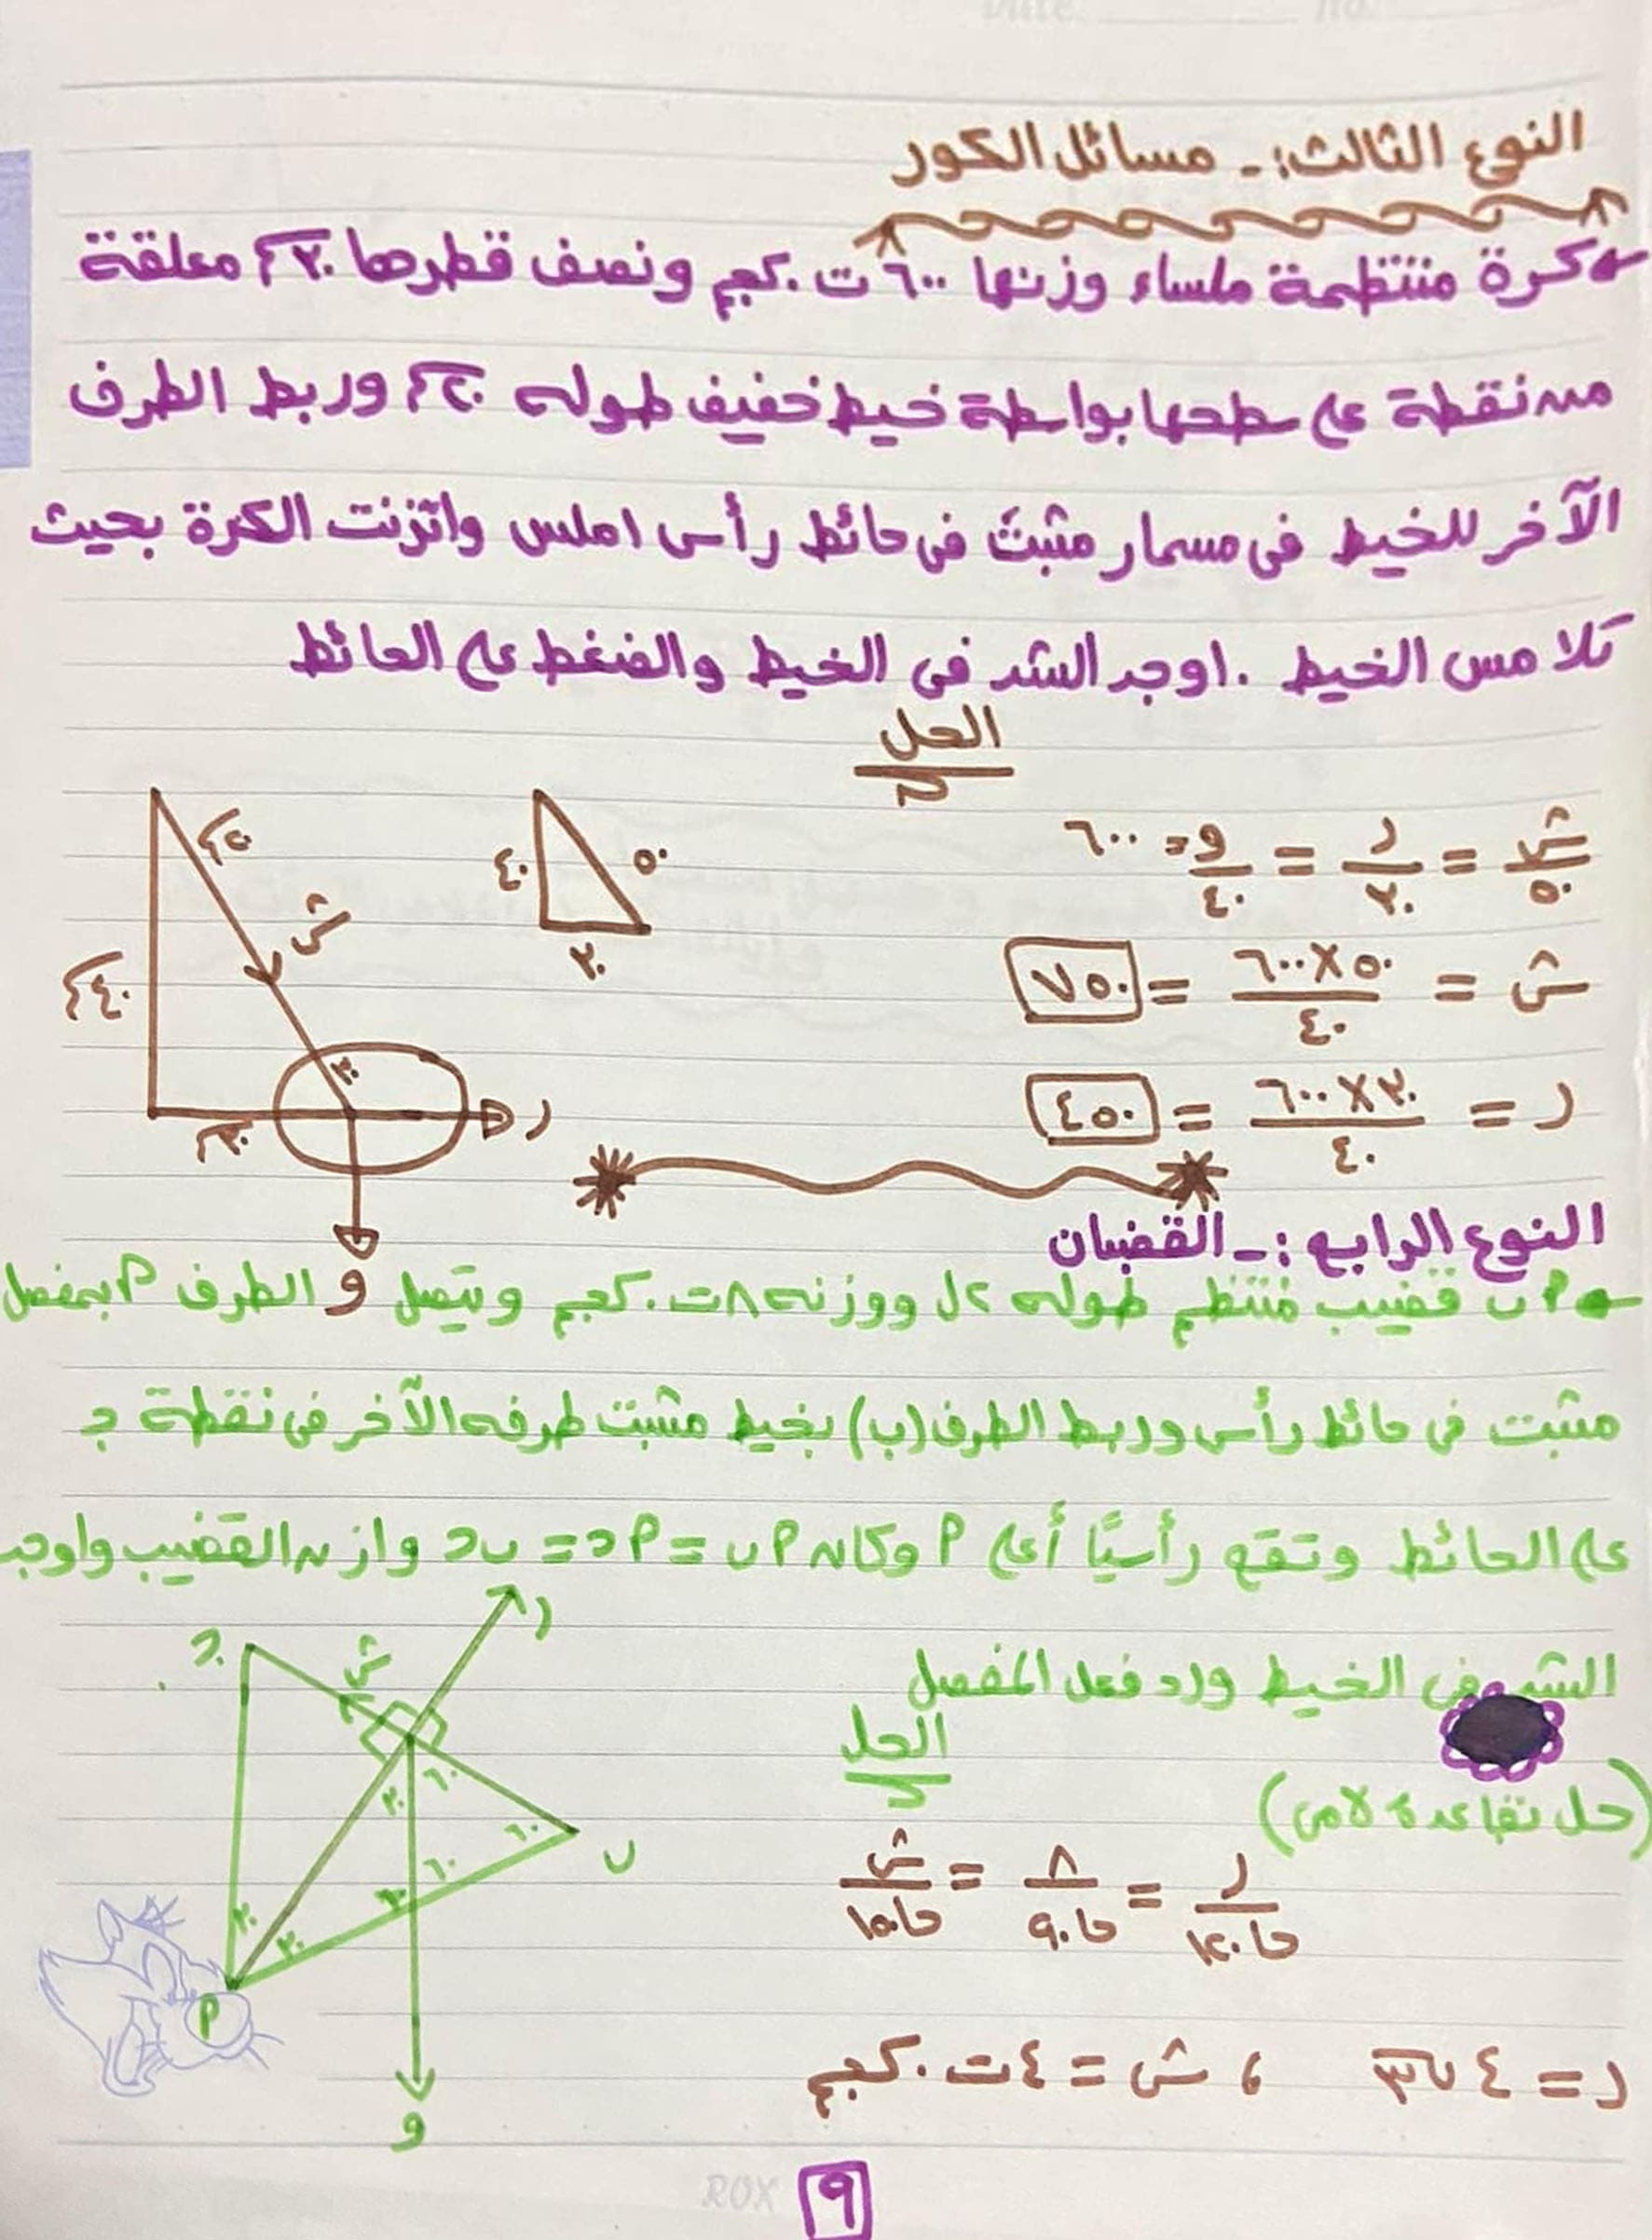 النوع الثالث:- مسائل الكور
كرة منتظمة ملساء وزنها ٦٠٠ ث.كجم ونصف قطرها ٣٠سم معلقة
من نقطة على سطحها بواسطة خيط خفيف طوله ٢٠سم وربط الطرف
الآخر للخيط فى مسمار مثبت فى حائط رأسى املس واتزنت الكرة بحيث
تلامس الخيط . اوجد الشد فى الخيط والضغط على الحائط
الحل
ش/٥٠ = ر/٣٠ = و=٦٠٠/٤٠
ش = ٦٠٠×٥٠/٤٠ = ٧٥٠
ر = ٦٠٠×٣٠/٤٠ = ٤٥٠
٤٠
٥٠
٣٠
ش
٤٠سم
٣٠
٣٠سم
ر
و
النوع الرابع :- القضبان
أ ب قضيب منتظم طوله ٢ل ووزنه ٨ث.كجم ويتصل الطرف أ بمفصل
مثبت فى حائط رأسى وربط الطرف (ب) بخيط مثبت طرفه الآخر فى نقطة جـ
على الحائط وتقع رأسيًا أعلى أ وكان أب = أجـ = بجـ وازن القضيب واوجد
الشد فى الخيط ورد فعل المفصل
الحل
(حل بقاعدة لامى)
ر/حا١٢٠ = ٨/حا٩٠ = ش/حا١٥٠
ر = ٤√٣ ، ش = ٤ث.كجم
جـ
ش
ر
٣٠
٦٠
٦٠
ب
٦٠
٣٠
٣٠
٣٠
أ
و
ROX
٩